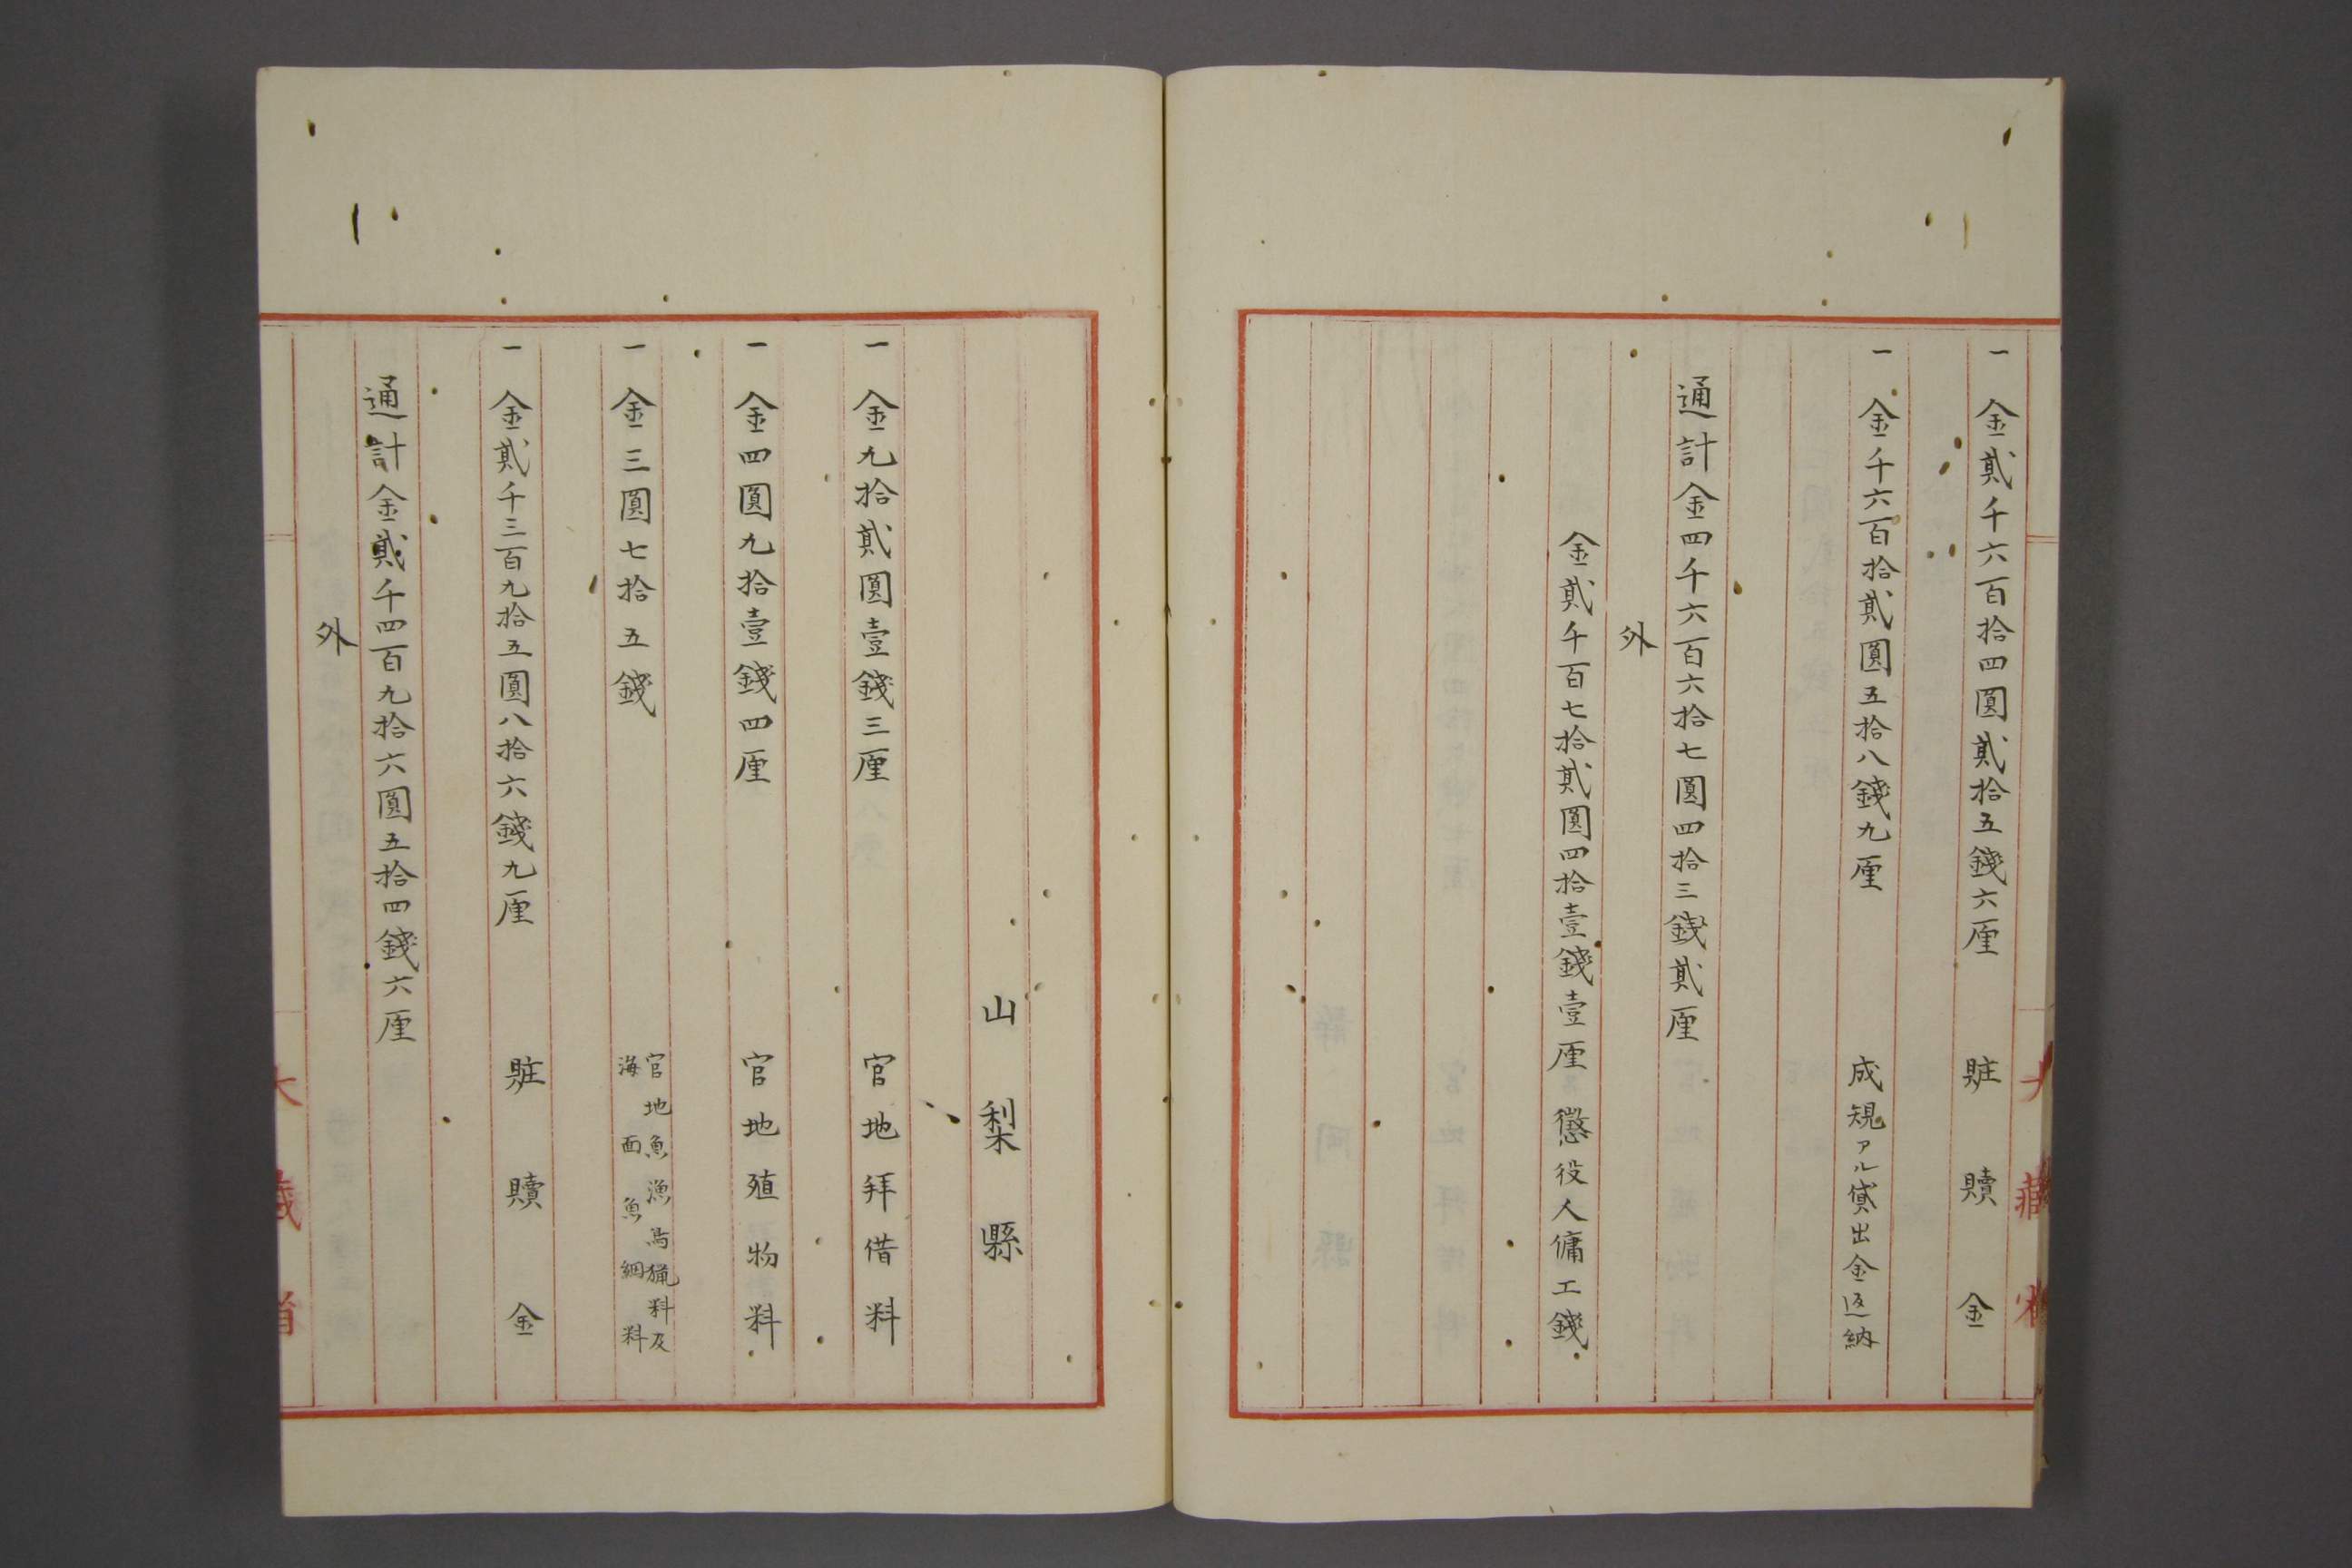 一 金貳千六百拾四圓貳拾五錢六厘 賍贖金
一 金千六百拾貳圓五拾八錢九厘 成規アル貸出金返納
通計金四千六百六拾七圓四拾三錢貳厘
外
金貳千百七拾貳圓四拾壹錢壹厘 懲役人傭工錢
大藏省
山梨縣
一 金九拾貳圓壹錢三厘 官地拜借料
一 金四圓九拾壹錢四厘 官地殖物料
一 金三圓七拾五錢 官地魚漁鳥猟料及
海面魚網料
一 金貳千三百九拾五圓八拾六錢九厘 賍贖金
通計金貳千四百九拾六圓五拾四錢六厘
外
大藏省